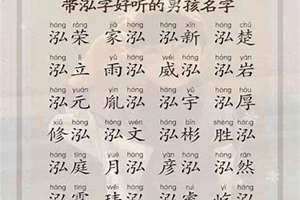 带泓字好听的男孩名字
hóng róng jiā hóng hóng xīn hóng chǔ
泓荣 家泓 泓新 泓楚
hóng lì yǔ hóng wēi hóng hóng yán
泓立 雨泓 威泓 泓岩
hóng yuán yìn hóng hóng yǔ hóng hòu
泓元 胤泓 泓宇 泓厚
xiū hóng hóng wén hóng bīn shèng hóng
修泓 泓文 泓彬 胜泓
hóng tíng yuè hóng yàn hóng hóng rán
泓庭 月泓 彦泓 泓然
泓 泓 泓 泓